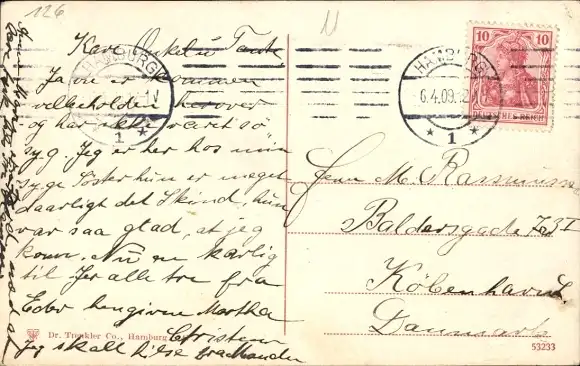 126
Kære Onkel u Tante
Ja nu er kommen
velbeholden herover
og har ikke været sö
syg. Jeg er her hos min
syge Söster hun er meget
daarligt det Skind, hun
var saa glad, at jeg
kom. Nu en kærlig
til Jer alle tre fra
Eders hengivne Martha
Christen
Jeg skall hilse fra Manden
Dr. Trenkler Co., Hamburg
HAMBURG
1
HAMBURG
6.4.09
1
10 10
DEUTSCHES REICH
Herrn M. Rasmussen
Baldersgade 73 I
Köbenhavn L.
Danmark
53233